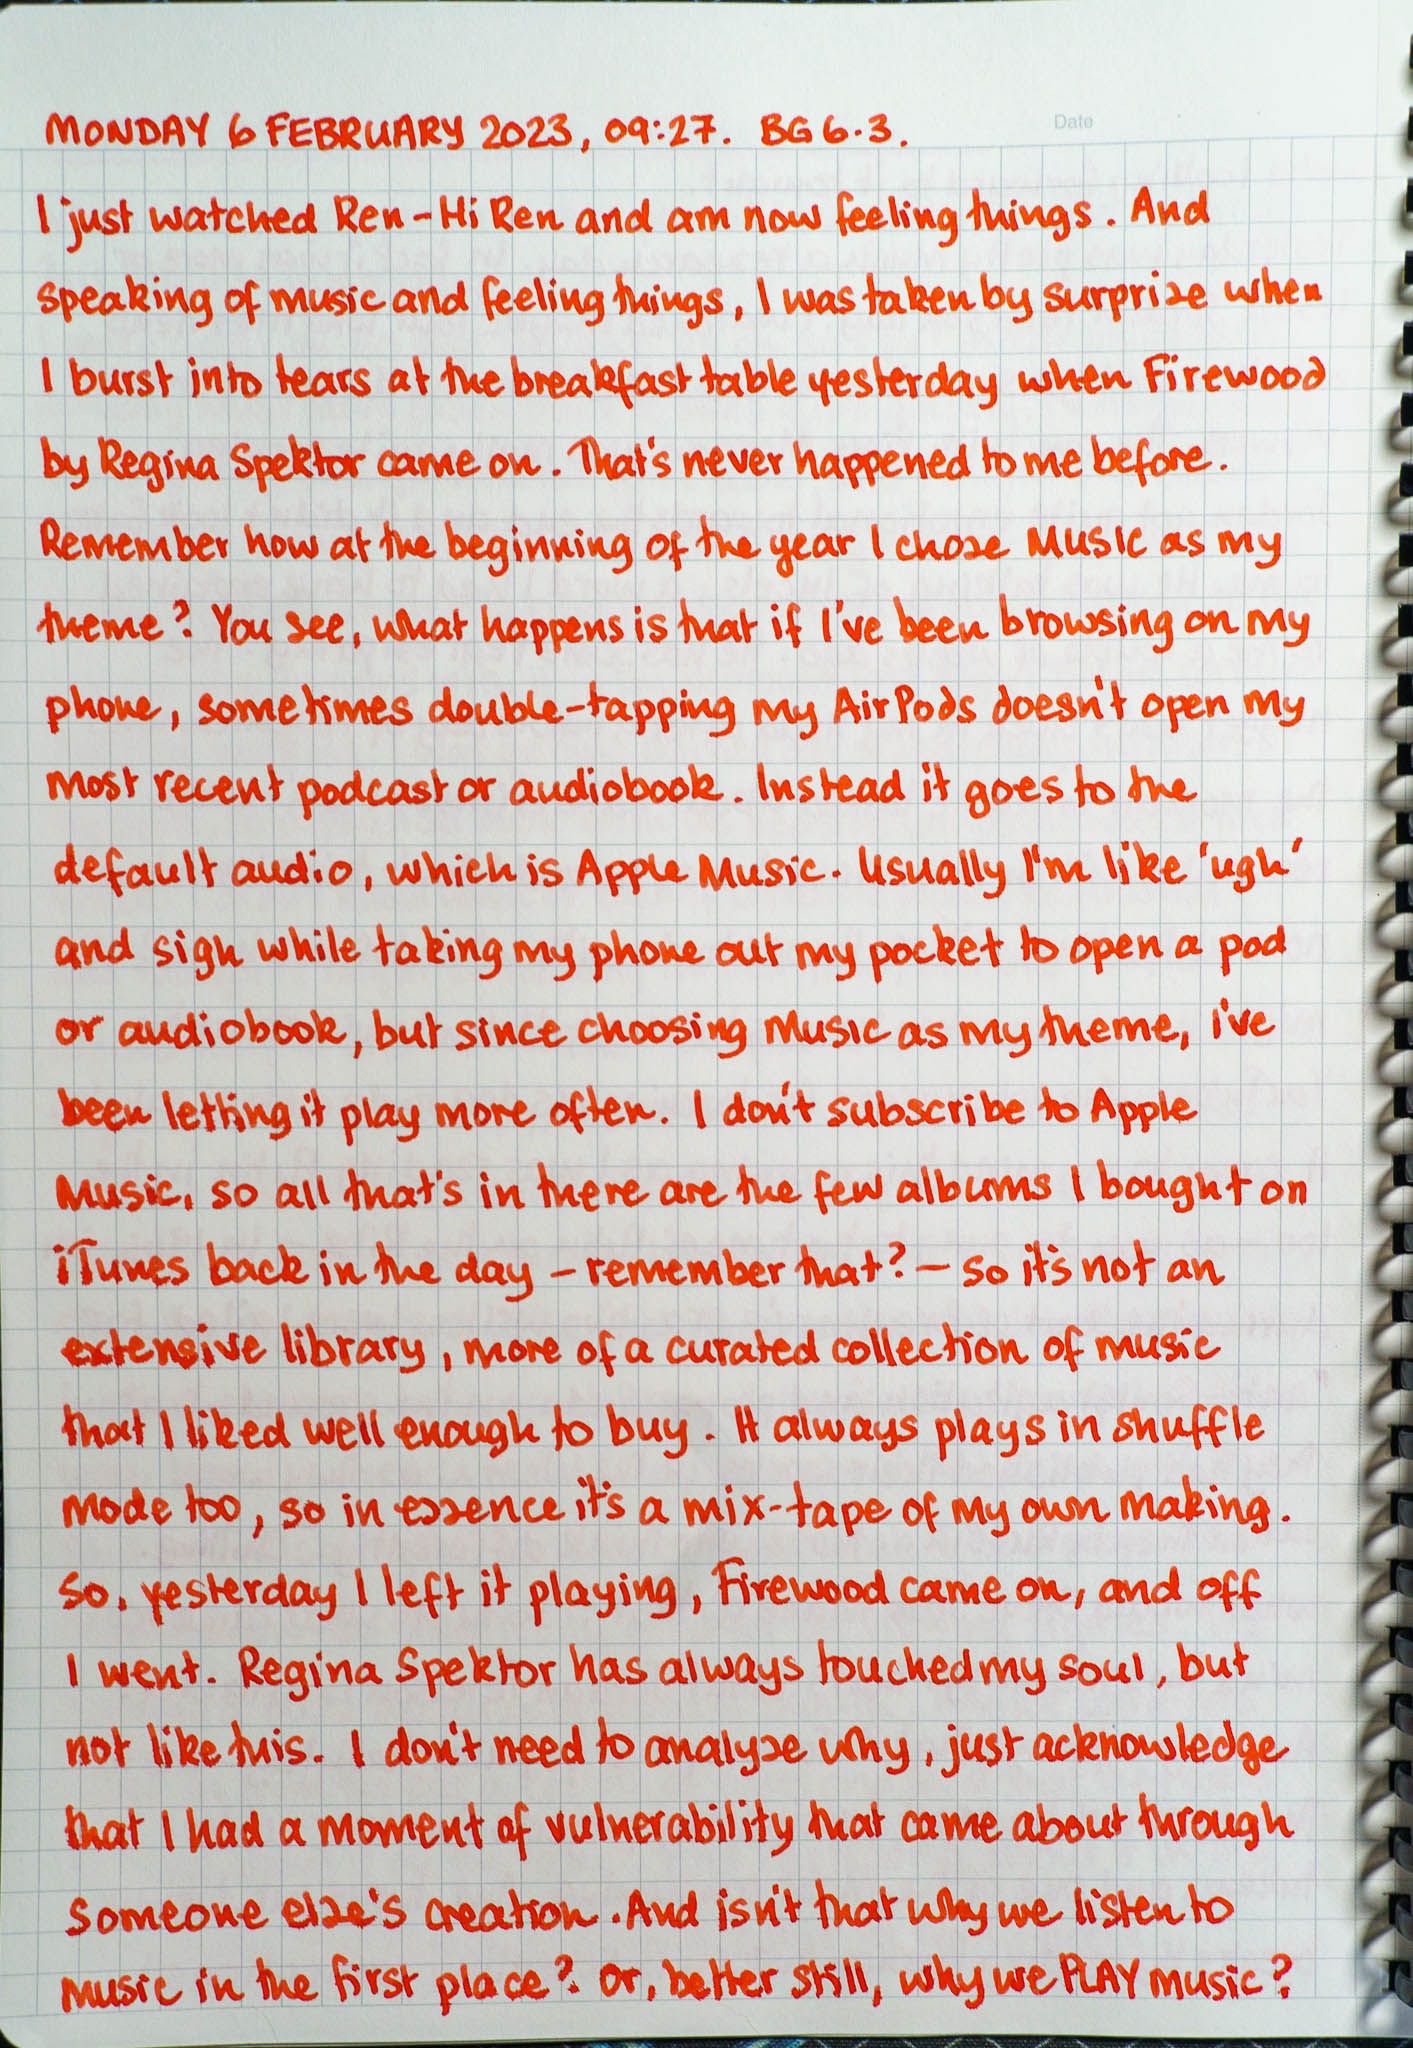 MONDAY 6 FEBRUARY 2023, 09:27. BG 6.3.
Date
I just watched Ren - Hi Ren and am now feeling things. And
speaking of music and feeling things, I was taken by surprise when
I burst into tears at the breakfast table yesterday when Firewood
by Regina Spektor came on. That's never happened to me before.
Remember how at the beginning of the year I chose MUSIC as my
theme? You see, what happens is that if I've been browsing on my
phone, sometimes double-tapping my AirPods doesn't open my
most recent podcast or audiobook. Instead it goes to the
default audio, which is Apple Music. Usually I'm like 'ugh'
and sigh while taking my phone out my pocket to open a pod
or audiobook, but since choosing MUSIC as my theme, I've
been letting it play more often. I don't subscribe to Apple
Music, so all that's in there are the few albums I bought on
iTunes back in the day - remember that? - so it's not an
extensive library, more of a curated collection of music
that I liked well enough to buy. It always plays in shuffle
mode too, so in essence it's a mix-tape of my own making.
So, yesterday I left it playing, Firewood came on, and off
I went. Regina Spektor has always touched my soul, but
not like this. I don't need to analyse why, just acknowledge
that I had a moment of vulnerability that came about through
someone else's creation. And isn't that why we listen to
music in the first place? Or, better still, why we PLAY music?